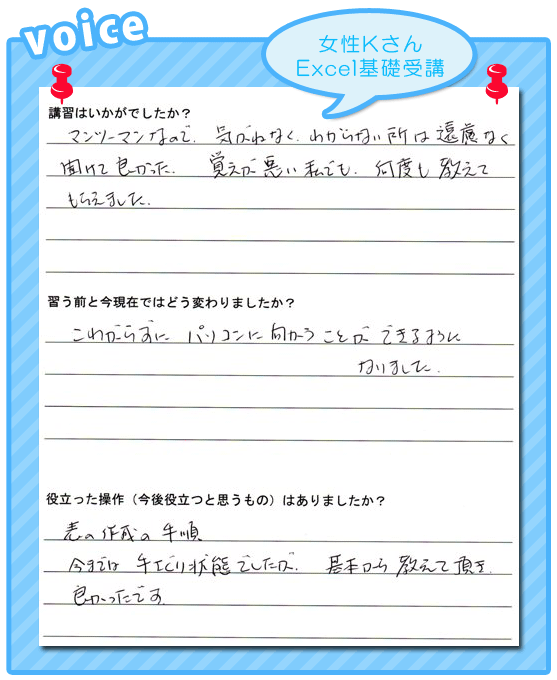 voice
女性Kさん
Excel基礎受講
講習はいかがでしたか？
マンツーマンなので、気がねなく、わからない所は遠慮なく
聞けて良かった。 覚えが悪い私でも、何度も教えて
もらえました。
習う前と今現在ではどう変わりましたか？
こわがらずに パソコンに向かうことが できるように
なりました。
役立った操作（今後役立つと思うもの）はありましたか？
表の作成の手順
今までは 手さぐり状態でしたが、 基本から 教えて頂き、
良かったです